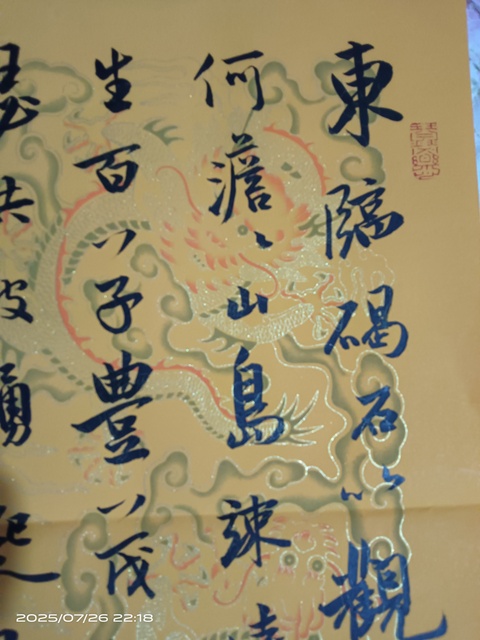 東臨碣石以觀
何澹〻山島竦
生百草豐茂
瑟洪波湧起
2025/07/26 22:18